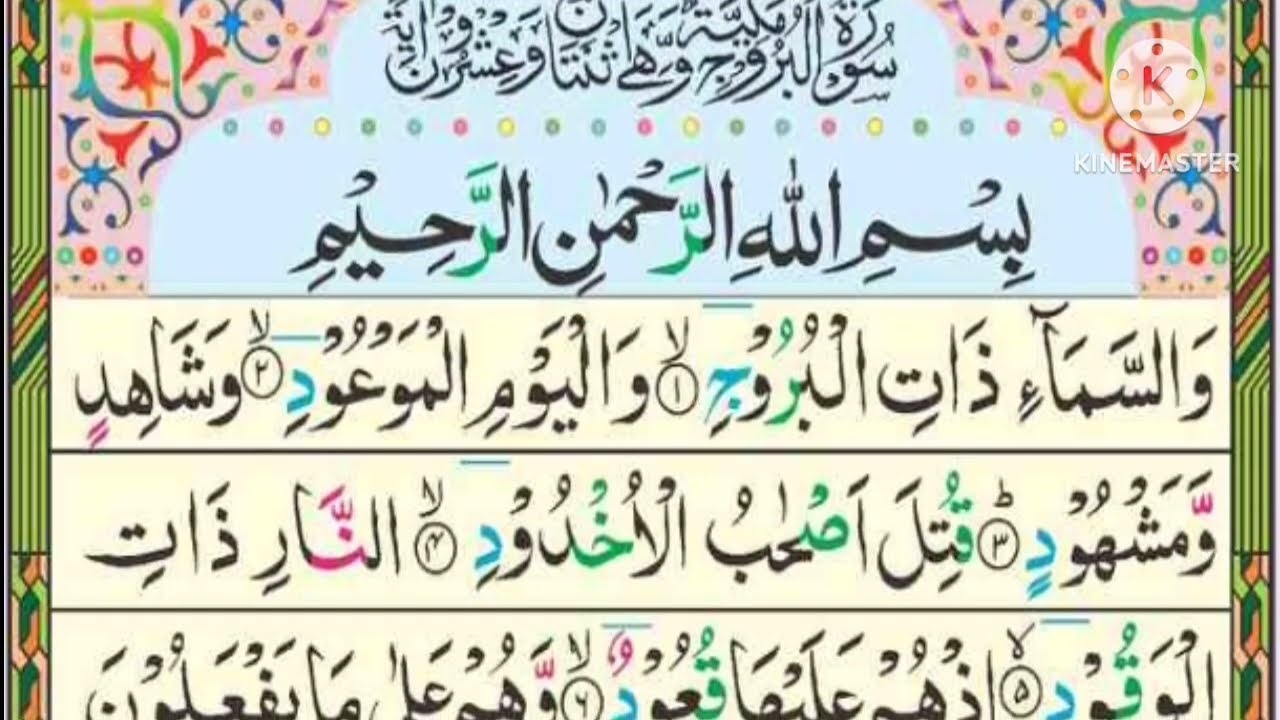 سُوْرَةُ الْبُرُوْجِ مَكِّيَّةٌ وَّهِیَ ثِنْتَانِ وَعِشْرُوْنَ اٰيَةً
K
KINEMASTER
بِسْمِ اللهِ الرَّحْمٰنِ الرَّحِيْمِ
وَالسَّمَآءِ ذَاتِ الْبُرُوْجِ ۙ﴿۱﴾ وَالْيَوْمِ الْمَوْعُوْدِ ۙ﴿۲﴾ وَشَاهِدٍ
وَّمَشْهُوْدٍ ؕ﴿۳﴾ قُتِلَ اَصْحٰبُ الْاُخْدُوْدِ ۙ﴿۴﴾ النَّارِ ذَاتِ
الْوَقُوْدِ ۙ﴿۵﴾ اِذْهُمْ عَلَيْهَا قُعُوْدٌ ۙ﴿۶﴾ وَّهُمْ عَلٰى مَا يَفْعَلُوْنَ